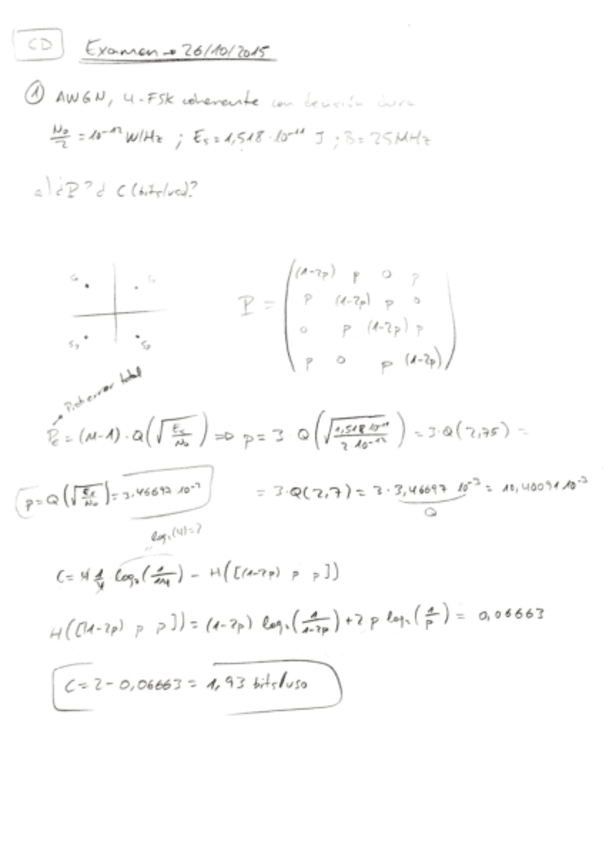 CD Examen → 26/10/2015
① AWGN, 4-FSK coherente con decisión dura
N₀/2 = 10⁻¹² W/Hz ; Es = 1,518·10⁻¹¹ J ; B = 25MHz
a) ¿P? ¿C (bits/uso)?
P = ((1-2p) p 0 p
p (1-2p) p 0
0 p (1-2p) p
p 0 p (1-2p))
→ Prob error total
Pe = (M-1)·Q(√(Es/N₀)) ⇒ p = 3·Q(√(1,518·10⁻¹¹/2·10⁻¹²)) = 3·Q(2,75) =
p = Q(√(Es/N₀)) = 3,46697·10⁻³ = 3·Q(2,7) = 3·3,46697·10⁻³ = 10,40091·10⁻³
Q
log₂(4)=2
C = 4·1/4 log₂(1/1/4) - H([(1-2p) p p])
H([(1-2p) p p]) = (1-2p) log₂(1/1-2p) + 2p log₂(1/p) = 0,06663
C = 2 - 0,06663 = 1,93 bits/uso